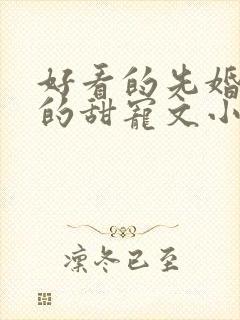 好看的先婚
的甜宠文小
凛冬已至